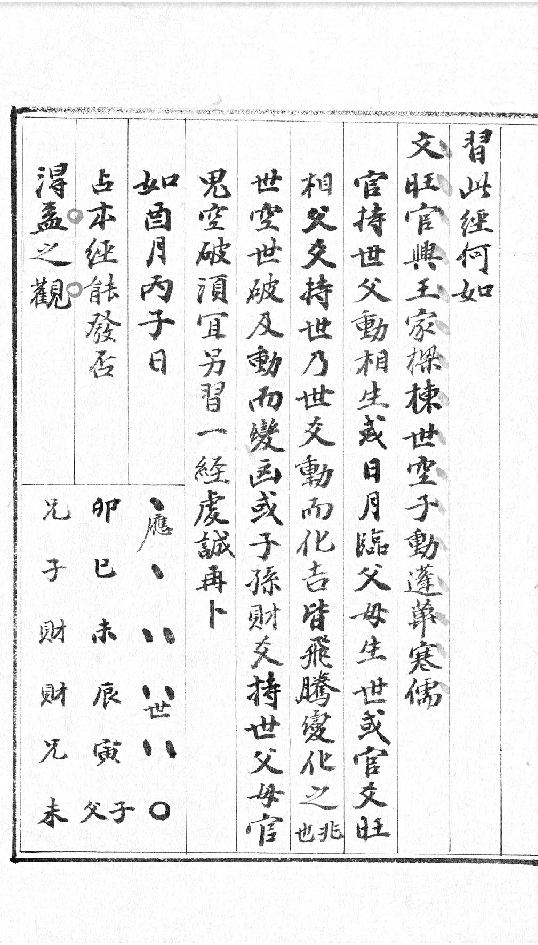 習此經何如
文旺官興王家樑棟世空子動蓬蓽寒儒
官持世父動相生或日月臨父母生世或官爻旺
相父爻持世乃世爻動而化吉皆飛騰變化之兆也
世空世破及動而變凶或子孫財爻持世父母官
鬼空破須宜另習一經虔誠再卜
如酉月丙子日
占本經能發否
得益之觀
、應、、、、、世、、〇
卯巳未辰寅子父
兄子財財兄未